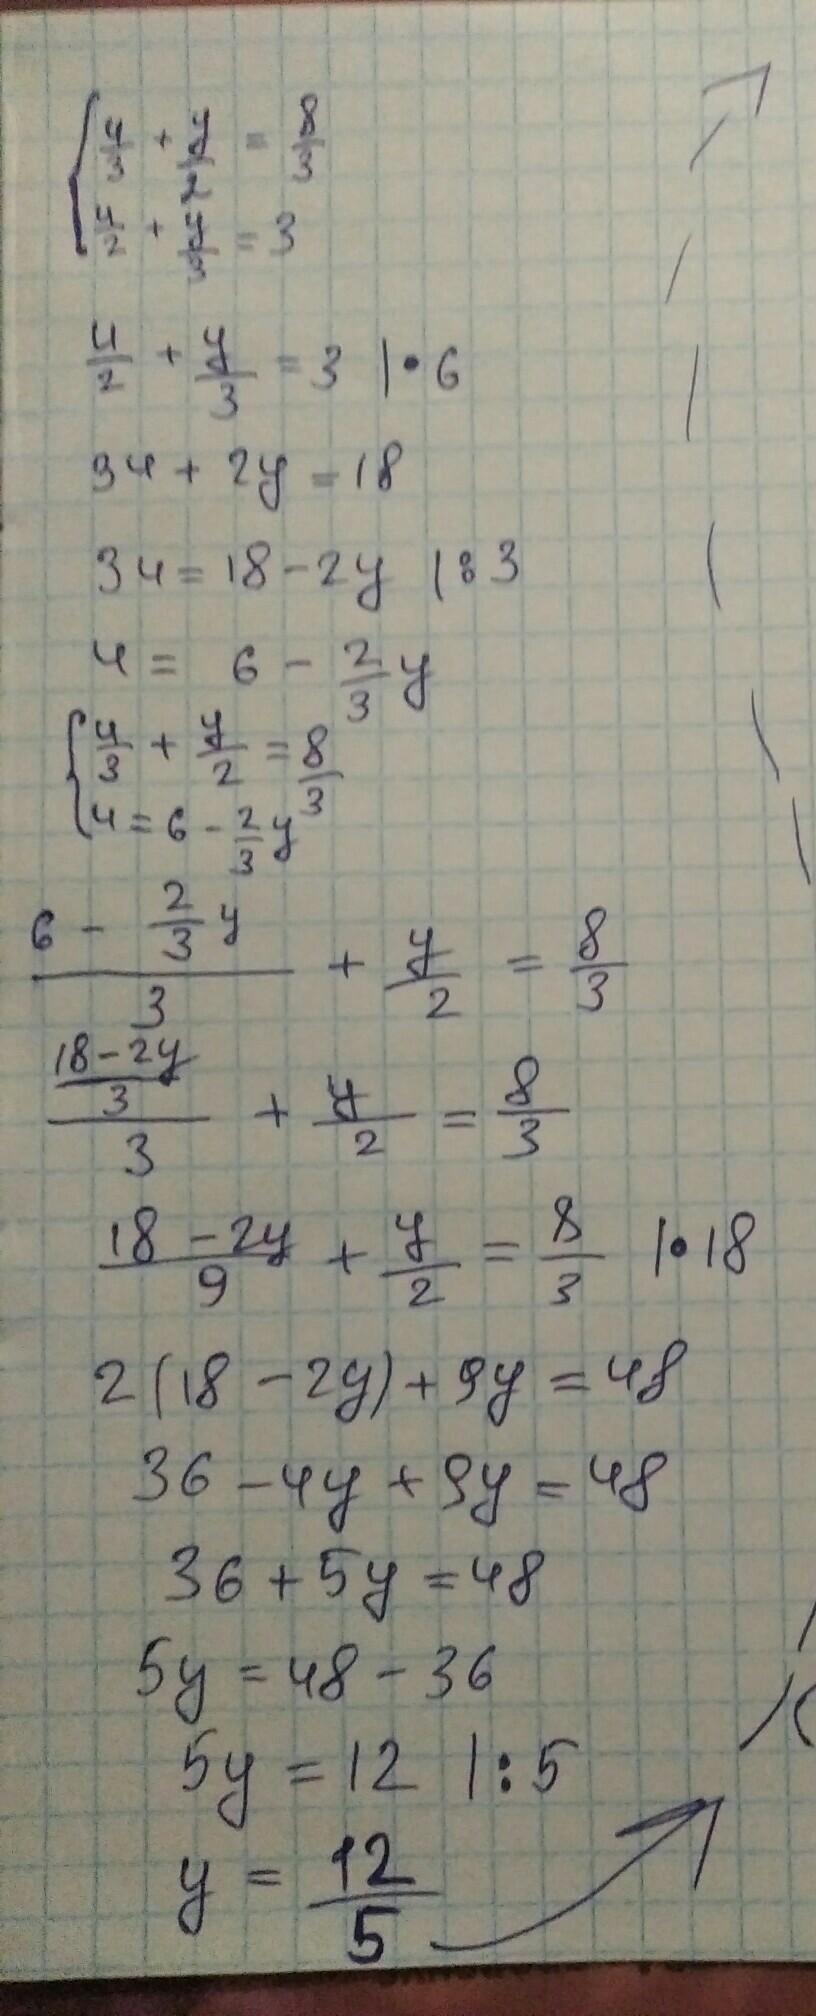 { 4/3 + y/2 = 8/3
4/2 + y/3 = 3
4/2 + y/3 = 3 |•6
34 + 2y = 18
34 = 18 - 2y |:3
4 = 6 - 2/3 y
{ 4/3 + y/2 = 8/3
4 = 6 - 2/3 y
(6 - 2/3 y)/3 + y/2 = 8/3
((18-2y)/3)/3 + y/2 = 8/3
(18-2y)/9 + y/2 = 8/3 |•18
2(18 - 2y) + 9y = 48
36 - 4y + 9y = 48
36 + 5y = 48
5y = 48 - 36
5y = 12 |:5
y = 12/5